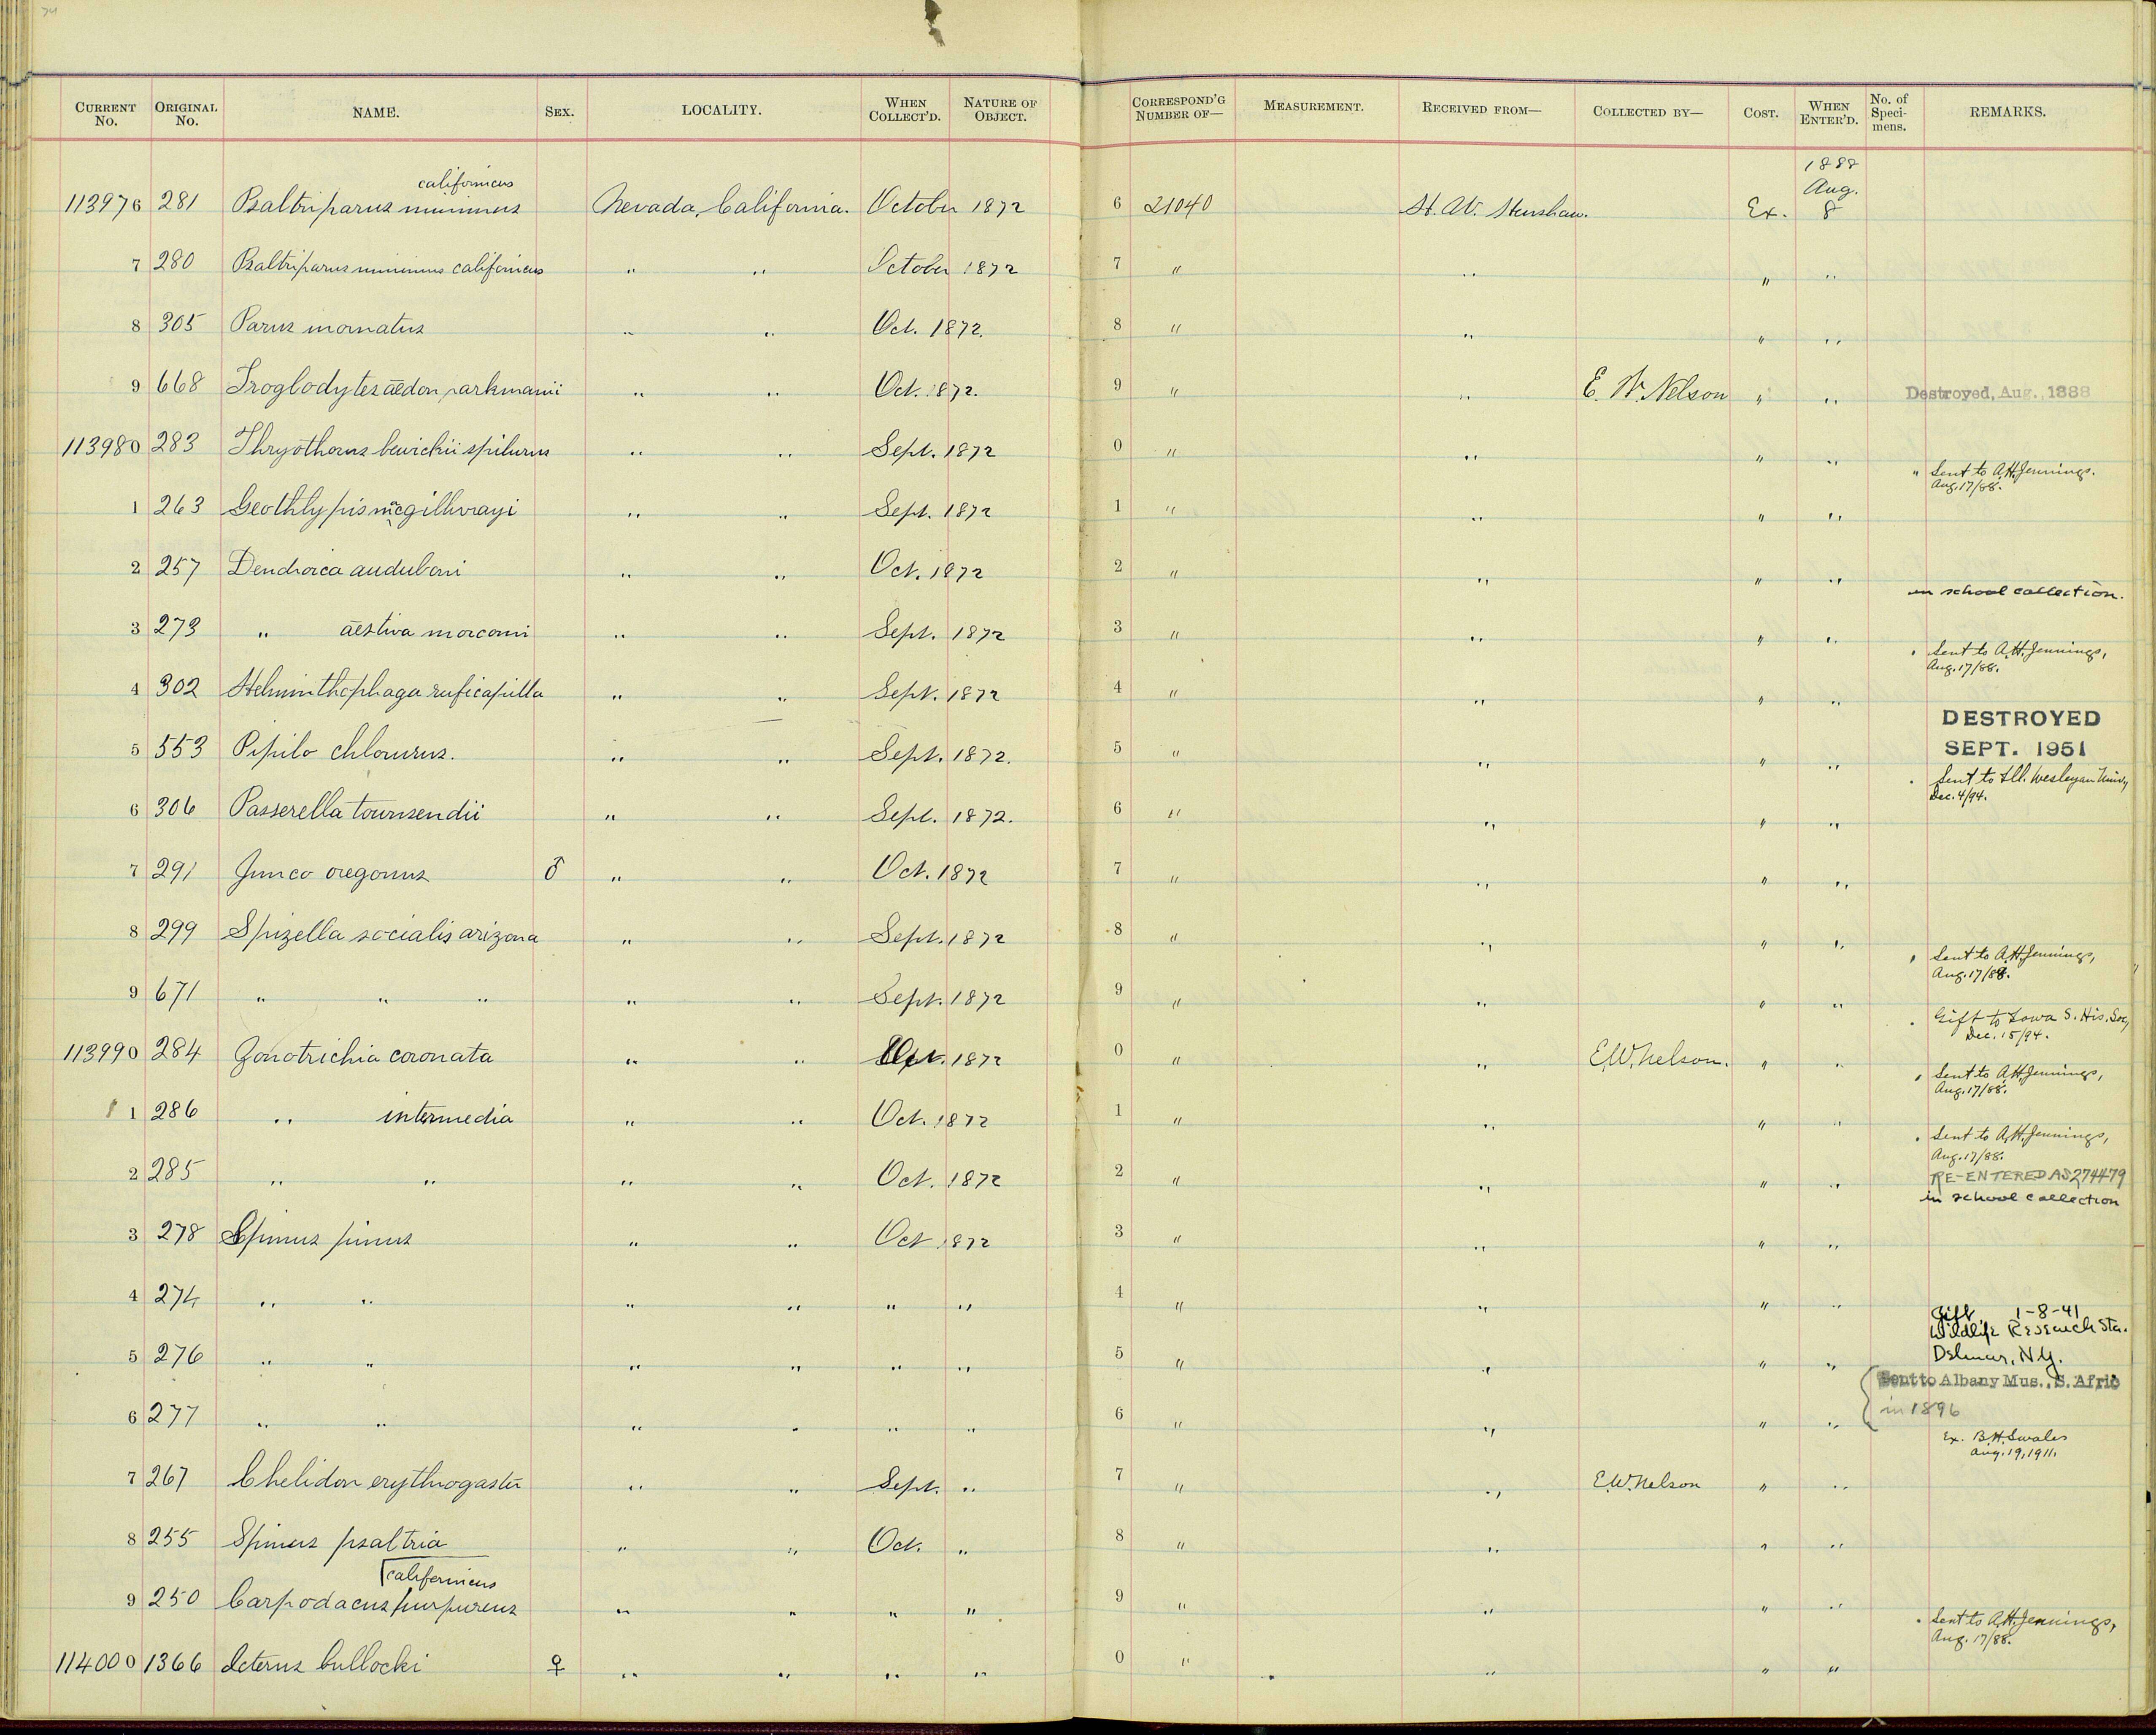 CURRENT No. ORIGINAL No. NAME. SEX. LOCALITY. WHEN COLLECT'D. NATURE OF OBJECT. CORRESPOND'G NUMBER OF— MEASUREMENT. RECEIVED FROM— COLLECTED BY— COST. WHEN ENTER'D. No. of Specimens. REMARKS.
californicus 1888 Aug.
113976 281 Psaltriparus minimus Nevada, California. October 1872 6 21040 H. W. Henshaw. Ex. 8
7 280 Psaltriparus minimus californicus " " October 1872 7 " " " "
8 305 Parus inornatus " " Oct. 1872. 8 " " " "
9 668 Troglodytes aëdon parkmanii " " Oct. 1872. 9 " " E. W. Nelson " " Destroyed, Aug., 1888
113980 283 Thryothorus bewickii spilurus " " Sept. 1872 0 " " " " " Sent to A.H. Jennings.
Aug. 17/88.
1 263 Geothlypis macgillivrayi " " Sept. 1872 1 " " " "
2 257 Dendroica auduboni " " Oct. 1872 2 " " " " in school collection.
3 273 " aestiva morcomi " " Sept. 1872 3 " " " " " Sent to A.H. Jennings,
Aug. 17/88.
4 302 Helminthophaga ruficapilla " " Sept. 1872 4 " " " "
DESTROYED
SEPT. 1951
5 553 Pipilo chlorurus. " " Sept. 1872. 5 " " " " " Sent to Ill. Wesleyan Univ,
Dec. 4/94.
6 306 Passerella townsendii " " Sept. 1872. 6 " " " "
7 291 Junco oregonus ♂ " " Oct. 1872 7 " " " "
8 299 Spizella socialis arizona " " Sept. 1872 8 " " " " " Sent to A.H. Jennings,
Aug. 17/88.
9 671 " " " " " Sept. 1872 9 " " " " " Gift to Iowa S. His. Soc,
Dec. 15/94.
113990 284 Zonotrichia coronata " " 1872 0 " " E.W. Nelson. " " " Sent to A.H. Jennings,
Aug. 17/88.
1 286 " intermedia " " Oct. 1872 1 " " " " " Sent to A.H. Jennings,
Aug. 17/88.
2 285 " " " " Oct. 1872 2 " " " " RE-ENTERED AS 274479
in school collection
3 278 Spinus pinus " " Oct 1872 3 " " " "
4 274 " " " " " " 4 " " " " Gift 1-8-41
Wildlife Research Sta.
Delmar, N.Y.
5 276 " " " " " " 5 " " " " Sent to Albany Mus., S. Afric
in 1896
6 277 " " " " " " 6 " " " " Ex. B.H. Swales
Aug. 19, 1911.
7 267 Chelidon erythrogaster " " Sept. " 7 " " E.W. Nelson " "
8 255 Spinus psaltria " " Oct. " 8 " " " "
californicus
9 250 Carpodacus purpureus " " " " 9 " " " " " Sent to A.H. Jennings,
Aug. 17/88.
114000 1366 Icterus bullocki ♀ " " " " 0 " " " "